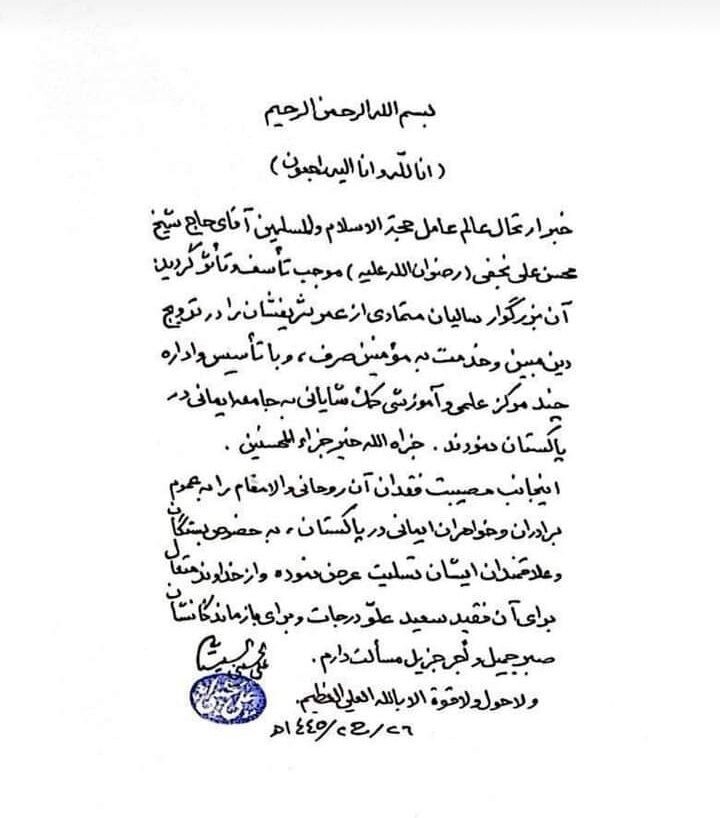 بسم الله الرحمن الرحیم
(انا لله و انا الیه راجعون)
خبر ارتحال عالم عامل حجة الاسلام والمسلمین آقای حاج شیخ
محسن علی نجفی (رضوان الله علیه) موجب تأسف و تأثر گردید.
آن بزرگوار سالیان متمادی از عمر شریفشان را در ترویج
دین مبین وخدمت به مؤمنین صرف، و با تأسیس و اداره
چند مرکز علمی و آموزشی کمک شایانی به جامعه ایمانی در
پاکستان نمودند. جزاه الله خیر جزاء المحسنین.
اینجانب مصیبت فقدان آن روحانی والامقام را به عموم
برادران و خواهران ایمانی در پاکستان، به خصوص بستگان
و علاقمندان ایشان تسلیت عرض نموده و از خداوند متعال
برای آن فقید سعید علوّ درجات و برای بازماندگانشان
صبر جمیل و أجر جزیل مسألت دارم.
ولا حول ولا قوة الا بالله العلي العظیم.
علي الحسيني السيستاني
٢٦/ج٢/١٤٤٥هـ